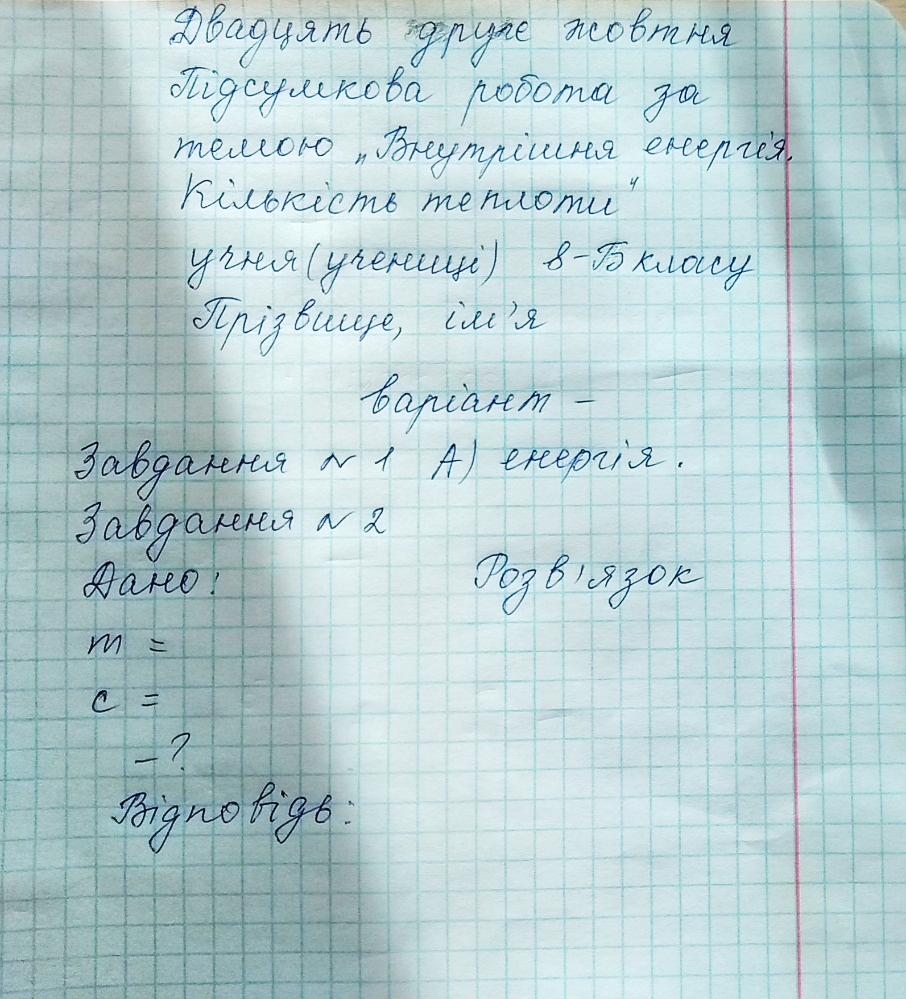 Двадцять друге жовтня
Підсумкова робота за
темою „Внутрішня енергія.
Кількість теплоти"
учня (учениці) 8-Б класу
Прізвище, ім'я
варіант –
Завдання № 1 А) енергія.
Завдання № 2
Дано: Розв'язок
m =
c =
– ?
Відповідь: